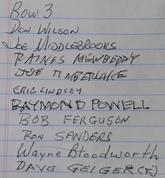 Row 3
Don Wilson
Joe Middlebrooks
Raines Newberry
Joe Timberlake
Eric Lindsey
Raymond Powell
Bob Ferguson
Ron Sanders
Wayne Bloodworth
Dave Geiger